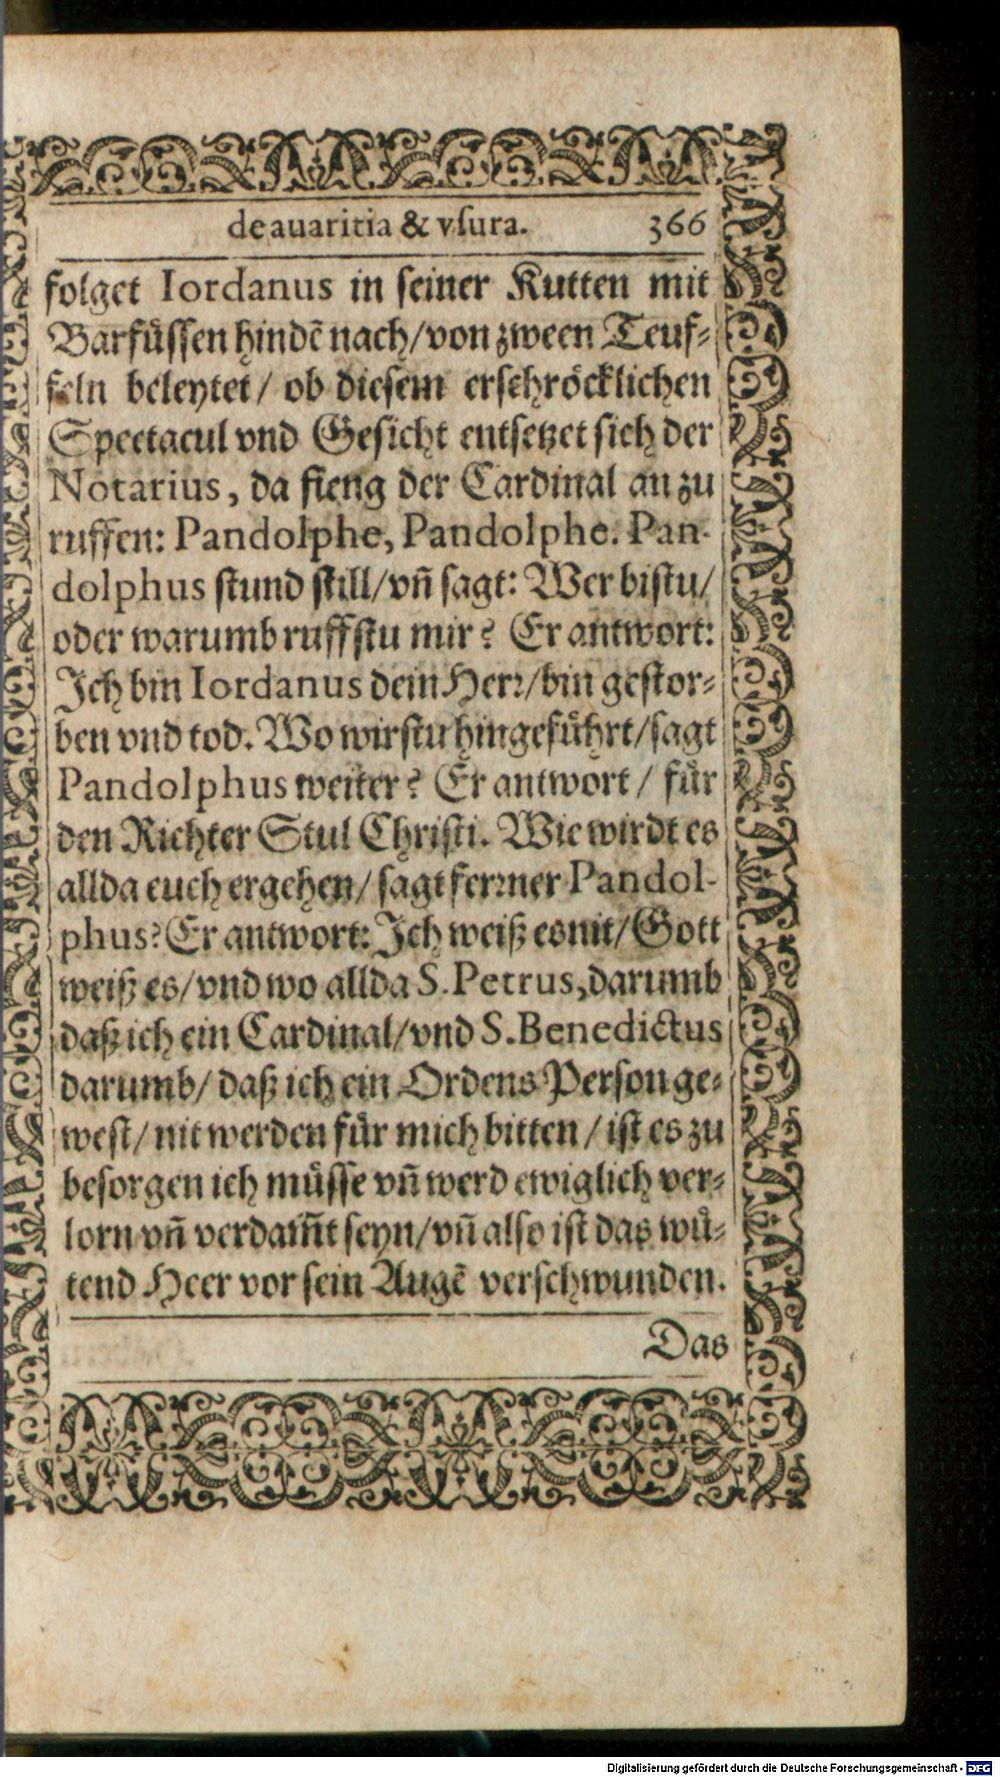 de auaritia & vſura. 366
folget Iordanus in ſeiner Kutten mit
Barfuͤſſen hindē nach/von zween Teuf⸗
feln beleytet/ ob dieſem erſchroͤcklichen
Spectacul vnd Geſicht entſetzet ſich der
Notarius, da fieng der Cardinal an zu
ruffen: Pandolphe, Pandolphe. Pan-
dolphus ſtund ſtill/vñ ſagt: Wer biſtu/
oder warumb ruffſtu mir? Er antwort:
Ich bin Iordanus dein Herꝛ/bin geſtor⸗
ben vnd tod. Wo wirſtu hingefuͤhrt/ſagt
Pandolphus weiter? Er antwort/ fuͤr
den Richter Stul Chriſti. Wie wirdt es
allda euch ergehen/ ſagt ferꝛner Pandol-
phus? Er antwort: Ich weiß es nit/Gott
weiß es/vnd wo allda S. Petrus, darumb
daß ich ein Cardinal/vnd S. Benedictus
darumb/ daß ich ein Ordens Perſon ge⸗
weſt/nit werden fuͤr mich bitten/iſt es zu
beſorgen ich muͤſſe vñ werd ewiglich ver⸗
lorn vñ verdam̃t ſeyn/vñ alſo iſt das wuͤ⸗
tend Heer vor ſein Augē verſchwunden.
Das
Digitalisierung gefördert durch die Deutsche Forschungsgemeinschaft - DFG